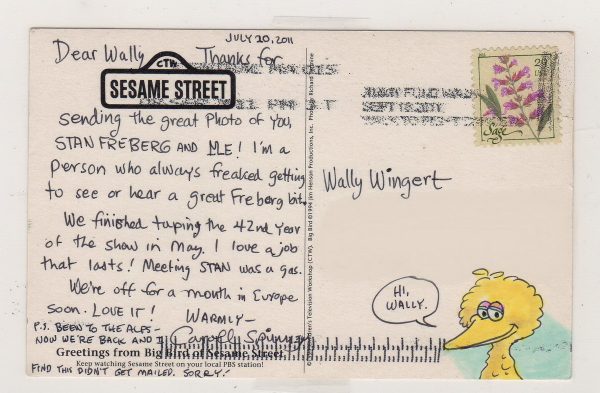 JULY 20, 2011
Dear Wally Thanks for
CTW
SESAME STREET
sending the great photo of you,
STAN FREBERG AND ME! I'm a
person who always freaked getting
to see or hear a great Freberg bit.
We finished taping the 42nd year
of the show in May. I love a job
that lasts! Meeting STAN was a gas.
We're off for a month in Europe
soon. LOVE IT! WARMLY-
Caroll Spinney
P.S. BEEN TO THE ALPS-
NOW WE'RE BACK AND I
FIND THIS DIDN'T GET MAILED. SORRY!
Greetings from Big Bird of Sesame Street
Keep watching Sesame Street on your local PBS station!
Television Workshop (CTW). Big Bird ©1994 Jim Henson Productions, Inc. Photo: Richard
29
USA
Sage
Wally Wingert
HI,
WALLY.